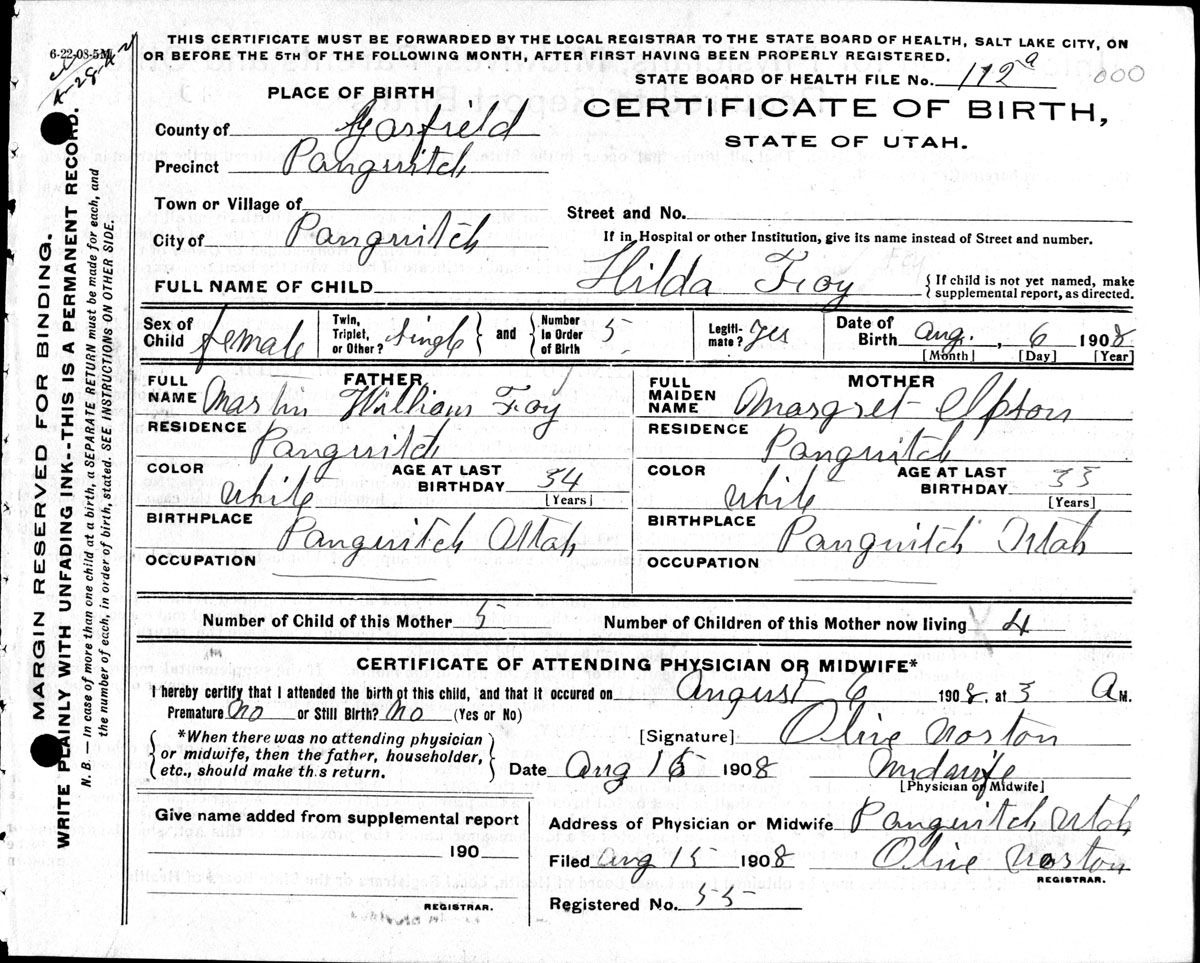 6-22-08-5M
THIS CERTIFICATE MUST BE FORWARDED BY THE LOCAL REGISTRAR TO THE STATE BOARD OF HEALTH, SALT LAKE CITY, ON
OR BEFORE THE 5TH OF THE FOLLOWING MONTH, AFTER FIRST HAVING BEEN PROPERLY REGISTERED.
STATE BOARD OF HEALTH FILE No. 112a 000
PLACE OF BIRTH
CERTIFICATE OF BIRTH,
STATE OF UTAH.
County of Garfield
Precinct Panguitch
Town or Village of
Street and No.
City of Panguitch
If in Hospital or other Institution, give its name instead of Street and number.
FULL NAME OF CHILD Hilda Foy { If child is not yet named, make supplemental report, as directed.
Sex of Child female Twin, Triplet, or Other? Single } and { Number In Order of Birth 5 Legitimate? Yes Date of Birth Aug. , 6 1908
[Month] [Day] [Year]
FATHER
FULL NAME Martin William Foy
RESIDENCE Panguitch
COLOR white AGE AT LAST BIRTHDAY 34 [Years]
BIRTHPLACE Panguitch Utah
OCCUPATION
MOTHER
FULL MAIDEN NAME Margret Ipson
RESIDENCE Panguitch
COLOR white AGE AT LAST BIRTHDAY 33 [Years]
BIRTHPLACE Panguitch Utah
OCCUPATION
Number of Child of this Mother 5 Number of Children of this Mother now living 4
CERTIFICATE OF ATTENDING PHYSICIAN OR MIDWIFE*
I hereby certify that I attended the birth of this child, and that it occured on August 6 1908, at 3 A M.
Premature No or Still Birth? No (Yes or No)
*When there was no attending physician
or midwife, then the father, householder,
etc., should make this return.
[Signature] Olive Norton
Date Aug 15 1908 Midwife
[Physician or Midwife]
Give name added from supplemental report
190
REGISTRAR.
Address of Physician or Midwife Panguitch Utah
Filed Aug 15 1908 Olive Norton
REGISTRAR.
Registered No. 55
MARGIN RESERVED FOR BINDING.
WRITE PLAINLY WITH UNFADING INK--THIS IS A PERMANENT RECORD.
N. B. — In case of more than one child at a birth, a SEPARATE RETURN must be made for each, and
the number of each, in order of birth, stated. SEE INSTRUCTIONS ON OTHER SIDE.